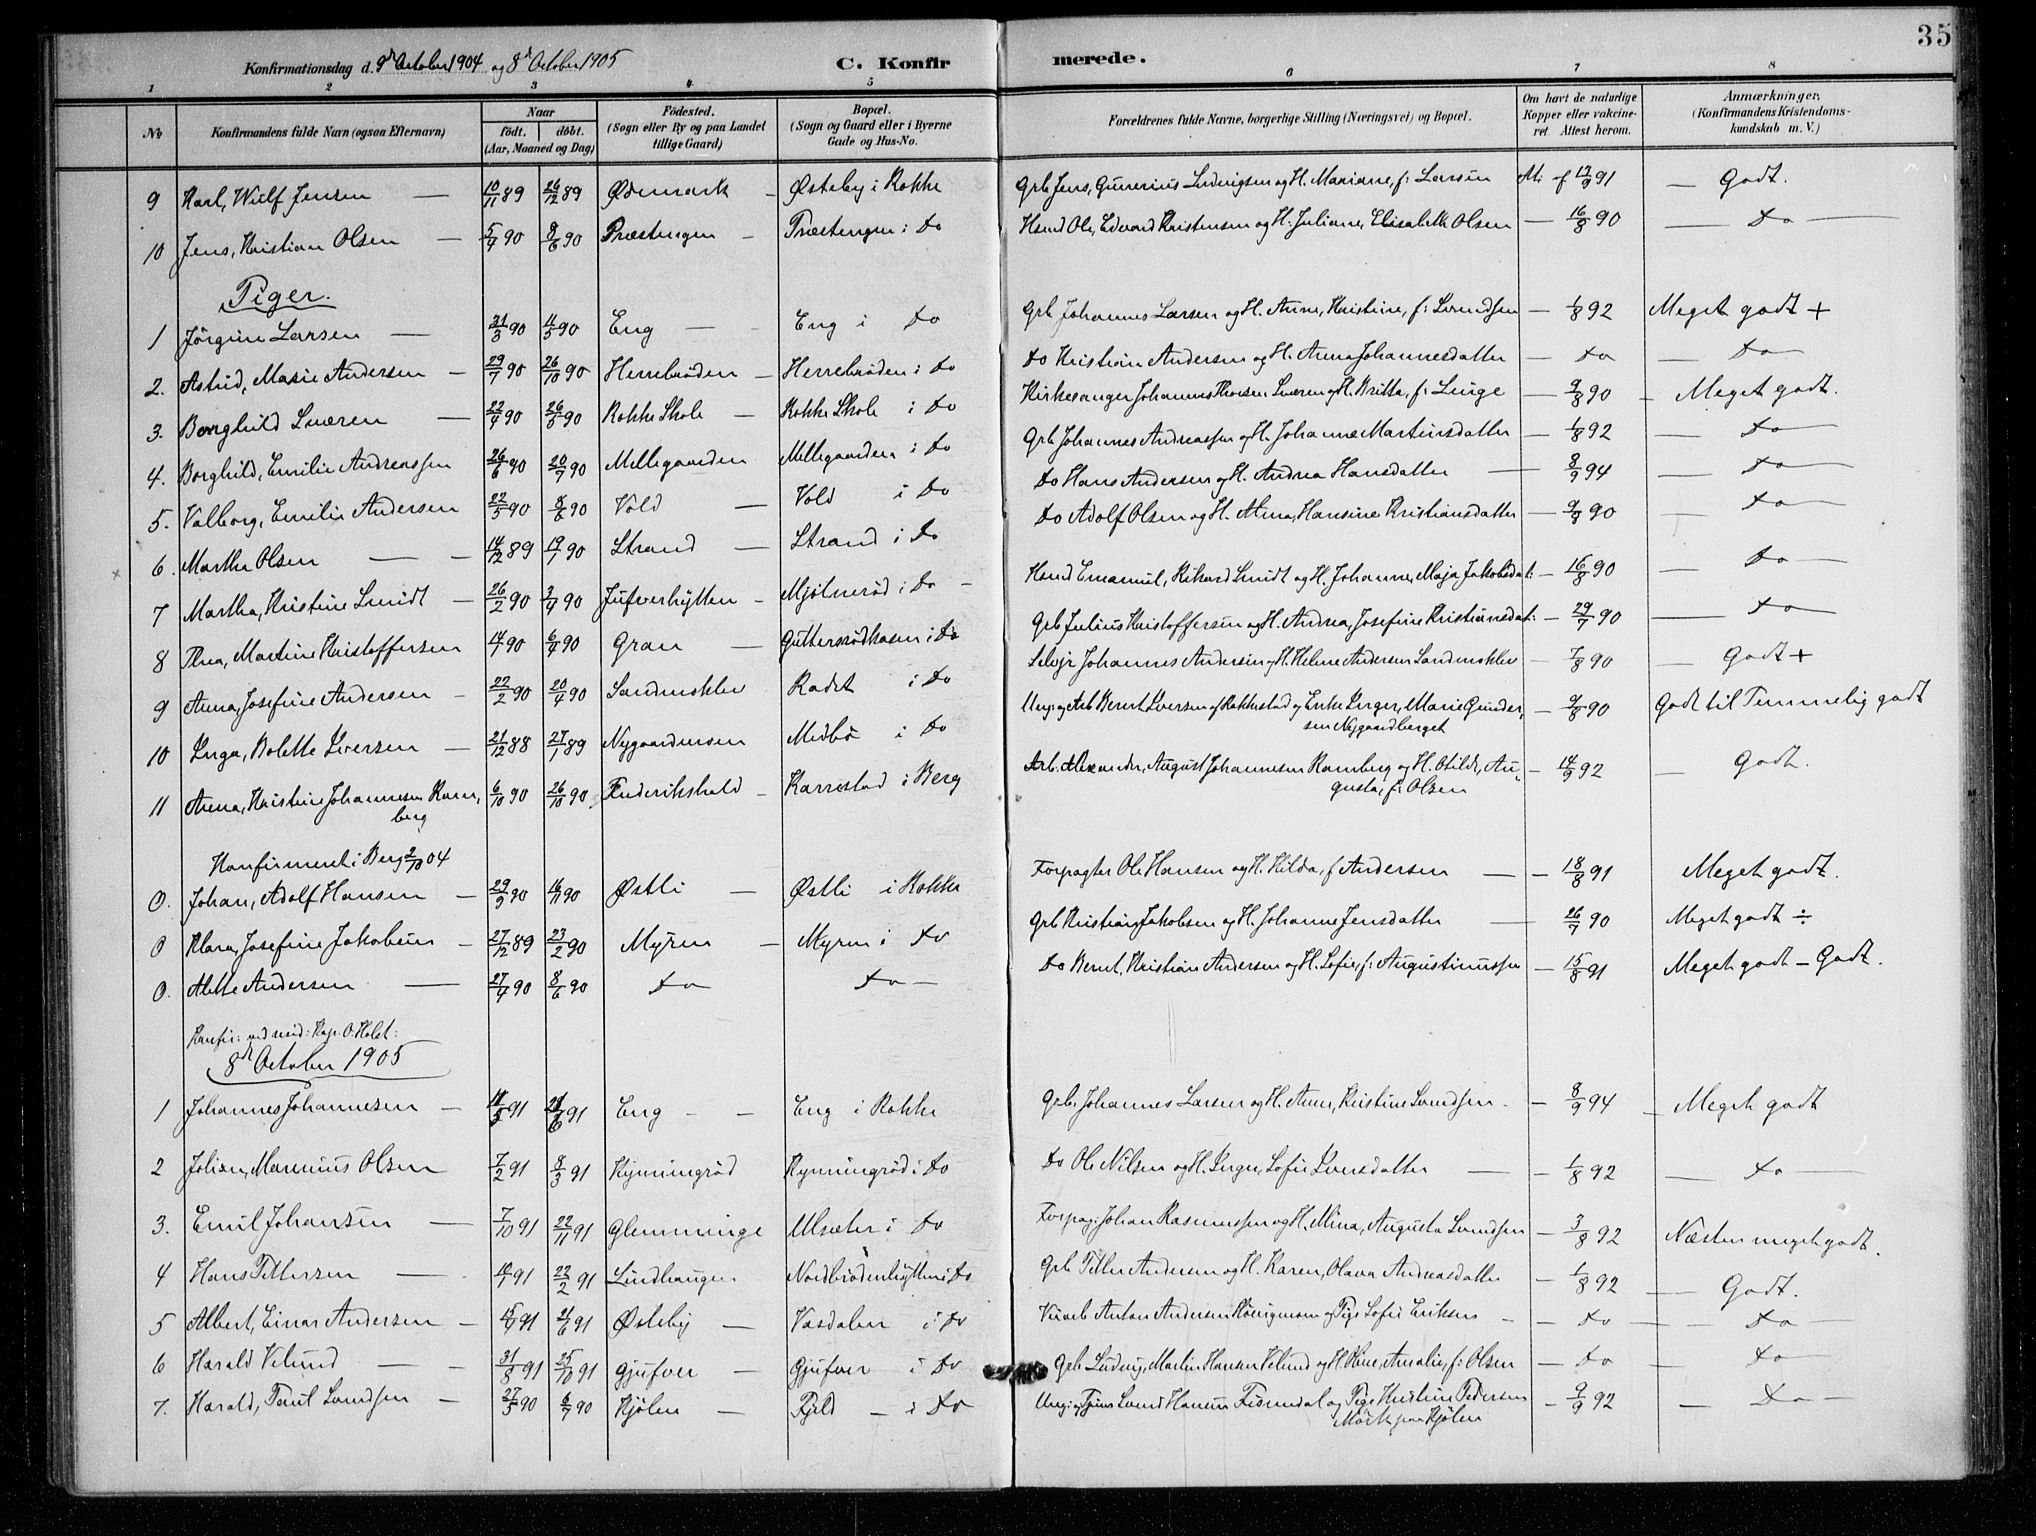 35
Konfirmationsdag d. 9de October 1904 og 8de October 1905 C. Konfirmerede.
1 2 3 4 5 6 7 8
No Konfirmandens fulde Navn (ogsaa Efternavn) Naar født. døbt. (Aar, Maaned og Dag) Fødested. (Sogn eller By og paa Landet tillige Gaard) Bopæl. (Sogn og Gaard eller i Byerne Gade og Hus-No. Forældrenes fulde Navne, borgerlige Stilling (Næringsvei) og Bopæl. Om havt de naturlige Kopper eller vakcineret. Attest herom. Anmærkninger. (Konfirmandens Kristendomskundskab m. V.)
9 Karl, Wulf Jensen — 10/11 89 26/12 89 Ødemark — Østeby i Rokke Grb. Jens, Gunerius Ludvigsen og H. Mariane, f: Larsen 17/9 91 — Godt.
10 Jens, Kristian Olsen — 5/4 90 8/6 90 Præstengen — Præstengen i Do Hsmd Ole, Edvard Kristensen og H. Juliane, Elisabeth Olsen — 16/8 90 — Do —
Piger.
1 Jørgine Larsen — 31/3 90 4/5 90 Eng — Eng i Do Grb Johannes Larsen og H. Anne, Kristine, f: Svendsen — 1/8 92 Meget godt +
2. Astrid, Marie Andersen — 29/7 90 26/10 90 Herrebrøden — Herrebrøden i Do Do Kristian Andersen og H. Anna Johannesdatter — Do — Do —
3. Borghild Sværen — 22/4 90 26/5 90 Rokke Skole — Rokke Skole i Do Kirkesanger Johannes Thorsen Sværen og H. Britha, f: Linge — 9/8 90 — Meget godt.
4. Borghild, Emilie Andreassen 26/6 90 20/7 90 Mellegaarden Mellegaarden i Do Grb Johannes Andreassen og H. Johanne Martinsdatter — 1/8 92 — Do —
5. Valborg, Emilie Andersen 22/5 90 8/6 90 Vold — Vold i Do Do Hans Andersen og H. Andrea Hansdatter — 8/9 94 — Do —
6. Martha Olsen — 14/12 89 19/1 90 Strand — Strand i Do Do Adolf Olsen og H. Anna, Hansine Kristiansdatter — 9/8 90 — Do —
7 Martha, Kristine Smidt — 26/2 90 3/4 90 Jufverhytten — Mjølnerød i Do — Hsmd Emanuel, Rikard Smidt og H. Johanne, Maja Jakobsdat: — 16/8 90 — Do —
8 Thea, Martine Kristoffersen 14/1 90 6/4 90 Gran — Guttersrødkasen i Do Grb Julius Kristoffersen og H. Andrea, Josefine Kristiansdat: — 29/7 90 — Do —
9 Anna, Josefine Andersen — 22/2 90 20/4 90 Sandmoklev Rødet i Do Selvejr Johannes Andersen og H. Helene Andersen Sandmoklev — 7/8 90 — Godt +
10 Inga, Bolette Iversen — 21/12 88 27/1 89 Nygaardmoen Medbø i Do Ung: og Arb Bernt Iversen af Rakkestad og Enke Inger, Marie Gundersen Nygaardberget — 9/8 90 Godt til Temmelig godt
11 Anna, Kristine Johannesen Ramberg 6/10 90 26/10 90 Frederikshald — Karrestad i Berg Arb. Alexander, August Johannesen Ramberg og H. Otilde, Augusta, f: Olsen — 14/9 92 — Godt.
Konfirmeret i Berg 2/10 04
0. Johan, Adolf Hansen — 29/9 90 16/11 90 Østli — Østli i Rokke Forpagter Ole Hansen og H. Hilda, f Andersen — 18/8 91 Meget godt.
0 Klara, Josefine Jakobsen — 27/12 89 23/2 90 Myren — Myren i Do Grb Kristian Jakobsen og H. Johanne Jensdatter — 26/7 90 Meget godt ÷
0. Alette Andersen — 27/4 90 8/6 90 Do Do — Do Bernt, Kristian Andersen og H. Sofie, f: Augustinussen — 15/8 91 Meget godt – Godt.
Konfir: ved resid: Kap. O. Holst:
8de October 1905
1 Johannes Johannesen — 14/5 91 21/6 91 Eng — Eng i Rokke Grb. Johannes Larsen og H. Anne, Kristine Svendsen. — 8/9 94 — Meget godt
2 Julian, Marenius Olsen 7/2 91 8/3 91 Kynningrød Kynningrød i Do Do Ole Nilsen og H. Inger, Sofie Iversdatter — 1/8 92 — Do —
3. Emil Johansen — 7/10 91 22/11 91 Glemminge Ulsæter i Do Forpag: Johan Rasmussen og H. Mina, Augusta Svendsen — 3/8 92 Næsten meget godt.
4 Hans Pettersen — 10/1 91 22/2 91 Lindhaugen Nordbrødenhytten i Do Grb Petter Andersen og H. Karen, Olava Andreasdatter — 1/8 92 — Godt.
5 Albert, Einar Andersen — 15/4 91 21/6 91 Østeby — Vasdalen i Do Anton Andersen og Pige Sofie Eriksen — Do — Do —
6 Harald Velund — 31/8 91 25/10 91 Gjufver — Gjufver i Do Grb Ludvig, Martin Hansen Velund og H. Oline, Amalie, f: Olsen — Do — Do —
7. Harald, Paul Svendsen — 27/5 90 6/7 90 Kjølen — Fjeld — i Do Ung: og Svend Hansen og Pige Kristine Pedersen Mørk paa Kjølen — 9/9 92 — Do —